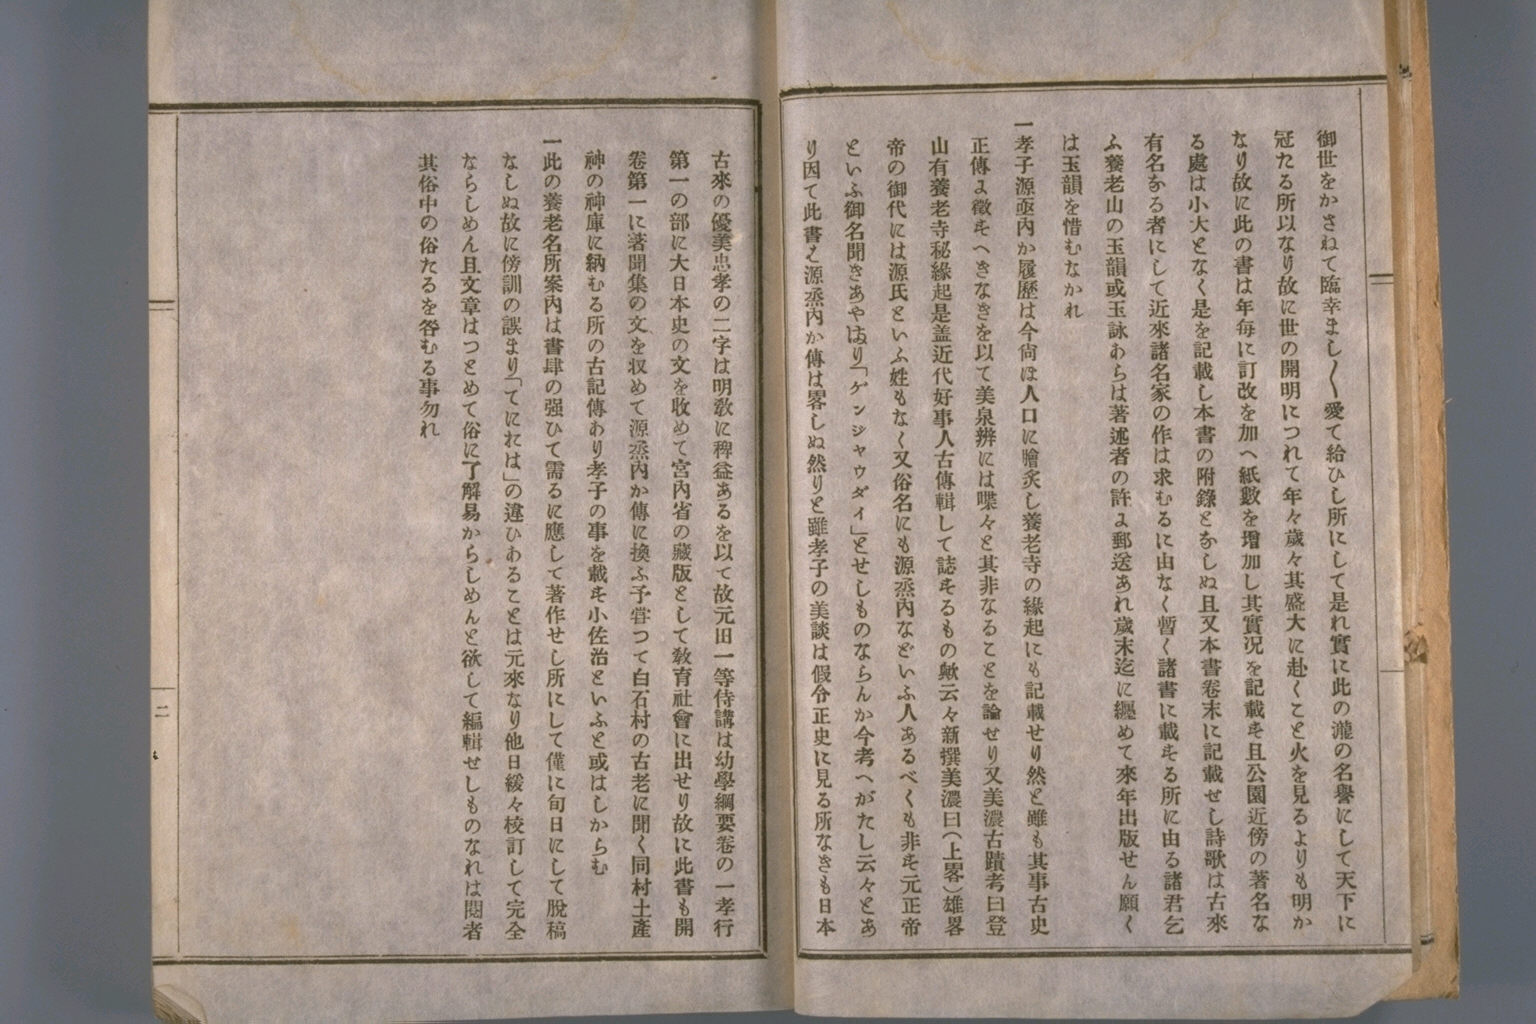 御世をかさねて臨幸まし〱愛て給ひし所にして是れ實に此の瀧の名譽にして天下に
冠たる所以なり故に世の開明につれて年々歳々其盛大に赴くこと火を見るよりも明か
なり故に此の書は年毎に訂改を加へ紙數を増加し其實况を記載せ且公園近傍の著名な
る處は小大となく是を記載し本書の附錄となしぬ且又本書卷末に記載せし詩歌は古來
有名なる者にして近來諸名家の作は求むるに由なく暫く諸書に載する所に由る諸君乞
ふ養老山の玉韻或玉詠あらは著述者の許に郵送あれ歳末迄に纒めて來年出版せん願く
は玉韻を惜むなかれ
一孝子源亟內か履歷は今尙ほ人口に膾炙し養老寺の緣起にも記載せり然と雖も其事古史
正傳に徵すへきなきを以て美泉辨には喋々と其非なることを論せり又美濃古蹟考曰登
山有養老寺秘緣起是盖近代好事人古傳輯して誌するもの歟云々新撰美濃曰(上畧)雄畧
帝の御代には源氏といふ姓もなく又俗名にも源烝內などいふ人あるべくも非す元正帝
といふ御名聞きあやはり「ゲンジャウダイ」とせしものならんか今考へがたし云々とあ
り因て此書も源烝內か傳は畧しぬ然りと雖孝子の美談は假令正史に見る所なきも日本
古來の優美忠孝の二字は明敎に稗益あるを以て故元田一等侍講は幼學綱要卷の一孝行
第一の部に大日本史の文を收めて宮內省の藏版として敎育社會に出せり故に此書も開
卷第一に著聞集の文を収めて源烝內か傳に換ふ予甞つて白石村の古老に聞く同村土產
神の神庫に納むる所の古記傳わり孝子の事を載す小佐治といふと或はしからむ
一此の養老名所案內は書肆の强ひて需るに應して著作せし所にして僅に旬日にして脫稿
なしぬ故に傍訓の誤まり「てにれは」の違ひあることは元來なり他日緩々校訂して完全
ならしめん且文章はつとめて俗に了解易からしめんと欲して編輯せしものなれは閱者
其俗中の俗たるを咎むる事勿れ
二